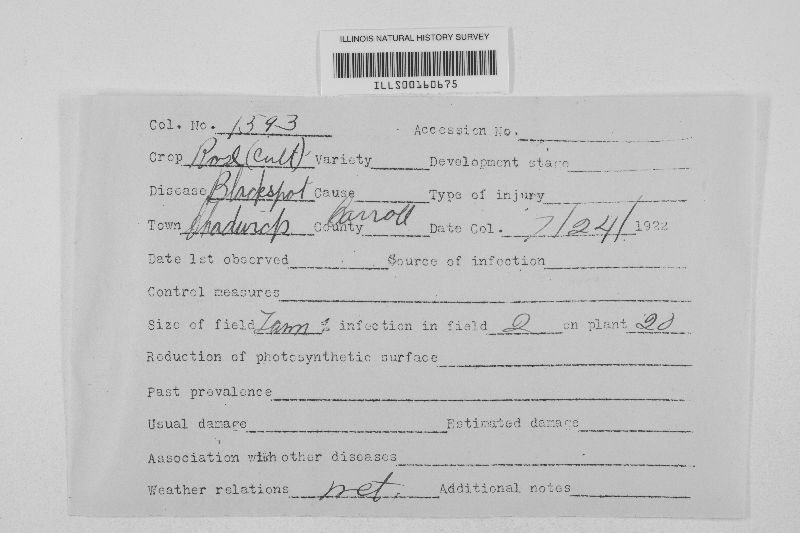 ILLINOIS NATURAL HISTORY SURVEY
ILLS00160675
Col. No. 1593 Accession No.
Crop Rose (Cult) Variety Development stage
Disease Blackspot Cause Type of injury
Town Chadwick County Carroll Date Col. 7/24/1922
Date 1st observed Source of infection
Control measures
Size of field % infection in field 2 on plant 20
Reduction of photosynthetic surface
Past prevalence
Usual damage Estimated damage
Association with other diseases
Weather relations wet. Additional notes